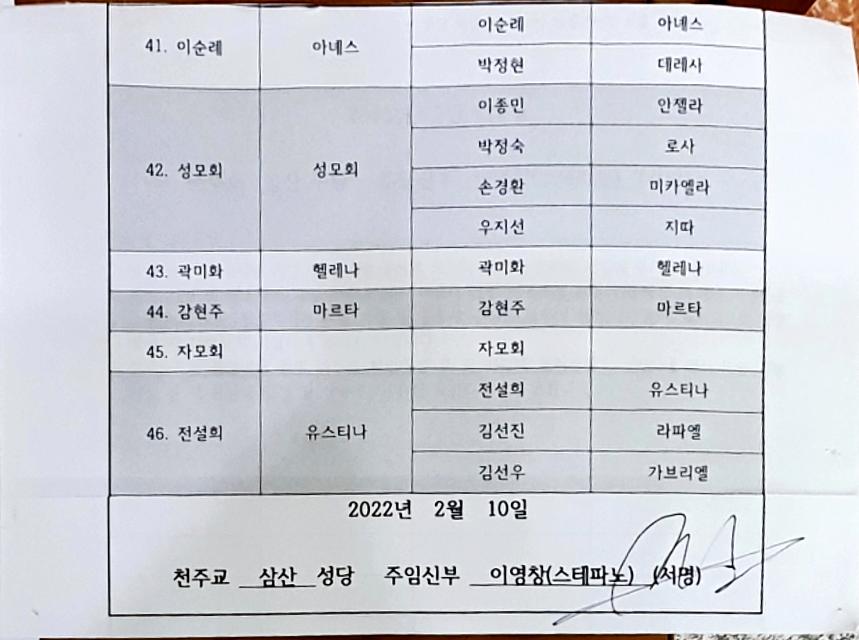 이순례 아녜스
41. 이순례 아녜스
박정현 데레사
이종민 안젤라
박정숙 로사
42. 성모회 성모회
손경환 미카엘라
우지선 지따
43. 곽미화 헬레나 곽미화 헬레나
44. 감현주 마르타 감현주 마르타
45. 자모회 자모회
전설희 유스티나
46. 전설희 유스티나 김선진 라파엘
김선우 가브리엘
2022년 2월 10일
천주교 삼산 성당 주임신부 이영창(스테파노) (서명)